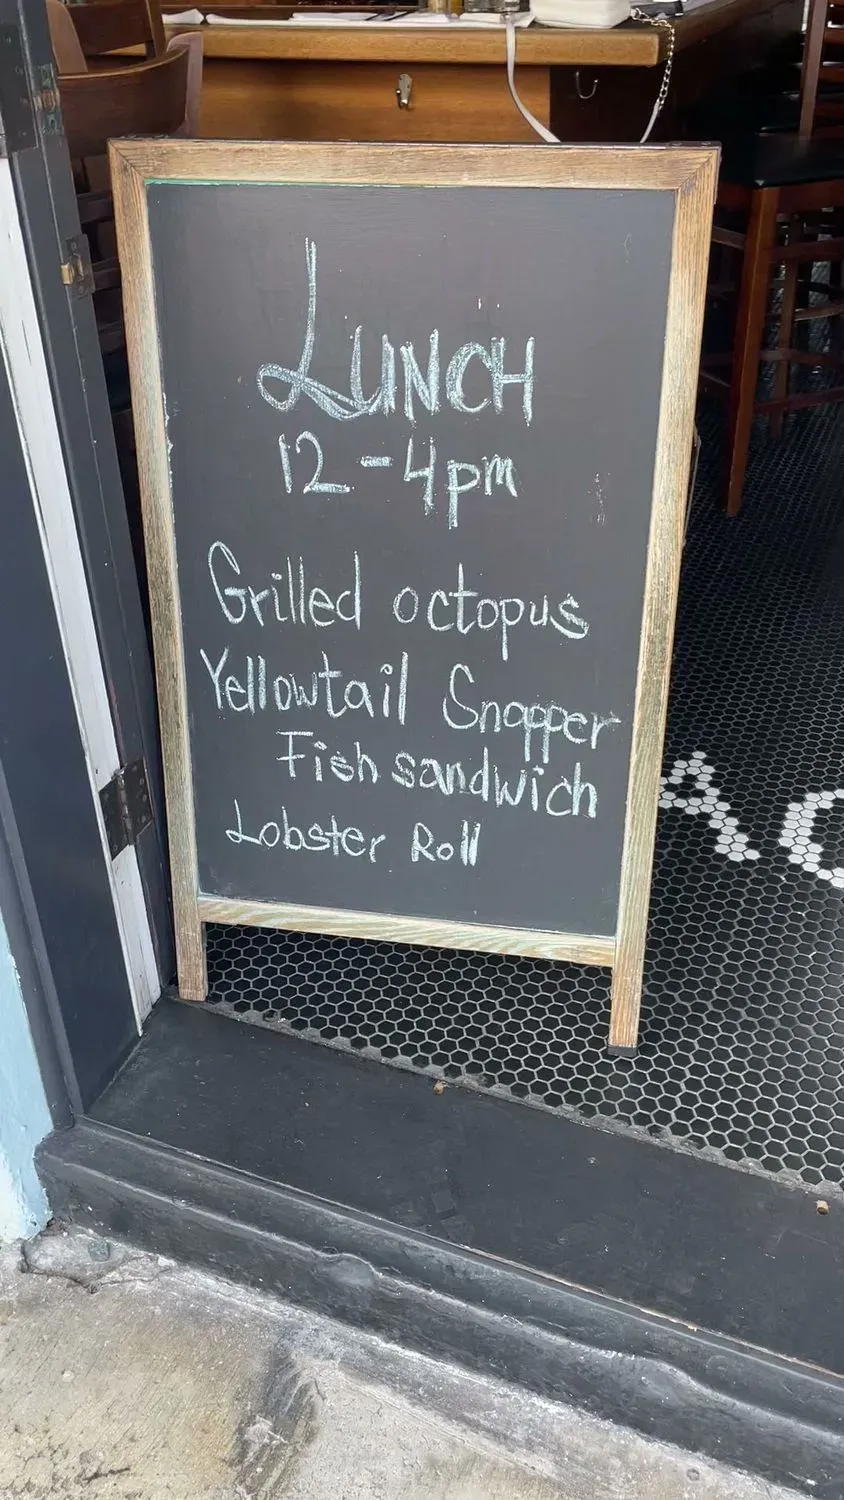 LUNCH
12-4pm
Grilled octopus
Yellowtail Snapper
Fish sandwich
Lobster Roll